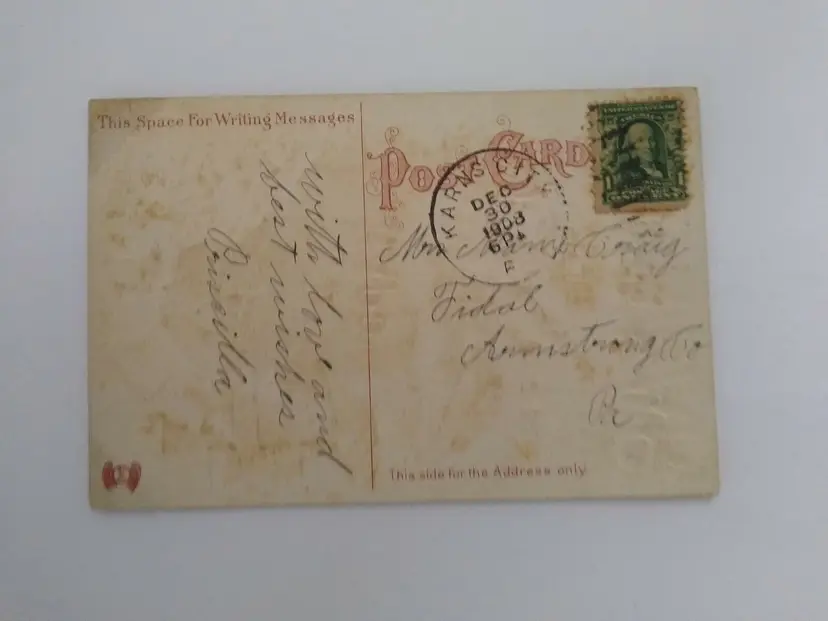 This Space For Writing Messages
with love and
best wishes
Priscilla
POST CARD
KARNS CITY
DEC
30
1908
6 PM
F
UNITED STATES OF AMERICA
1 1
Craig
Tidal
Armstrong Co
Pa
This side for the Address only